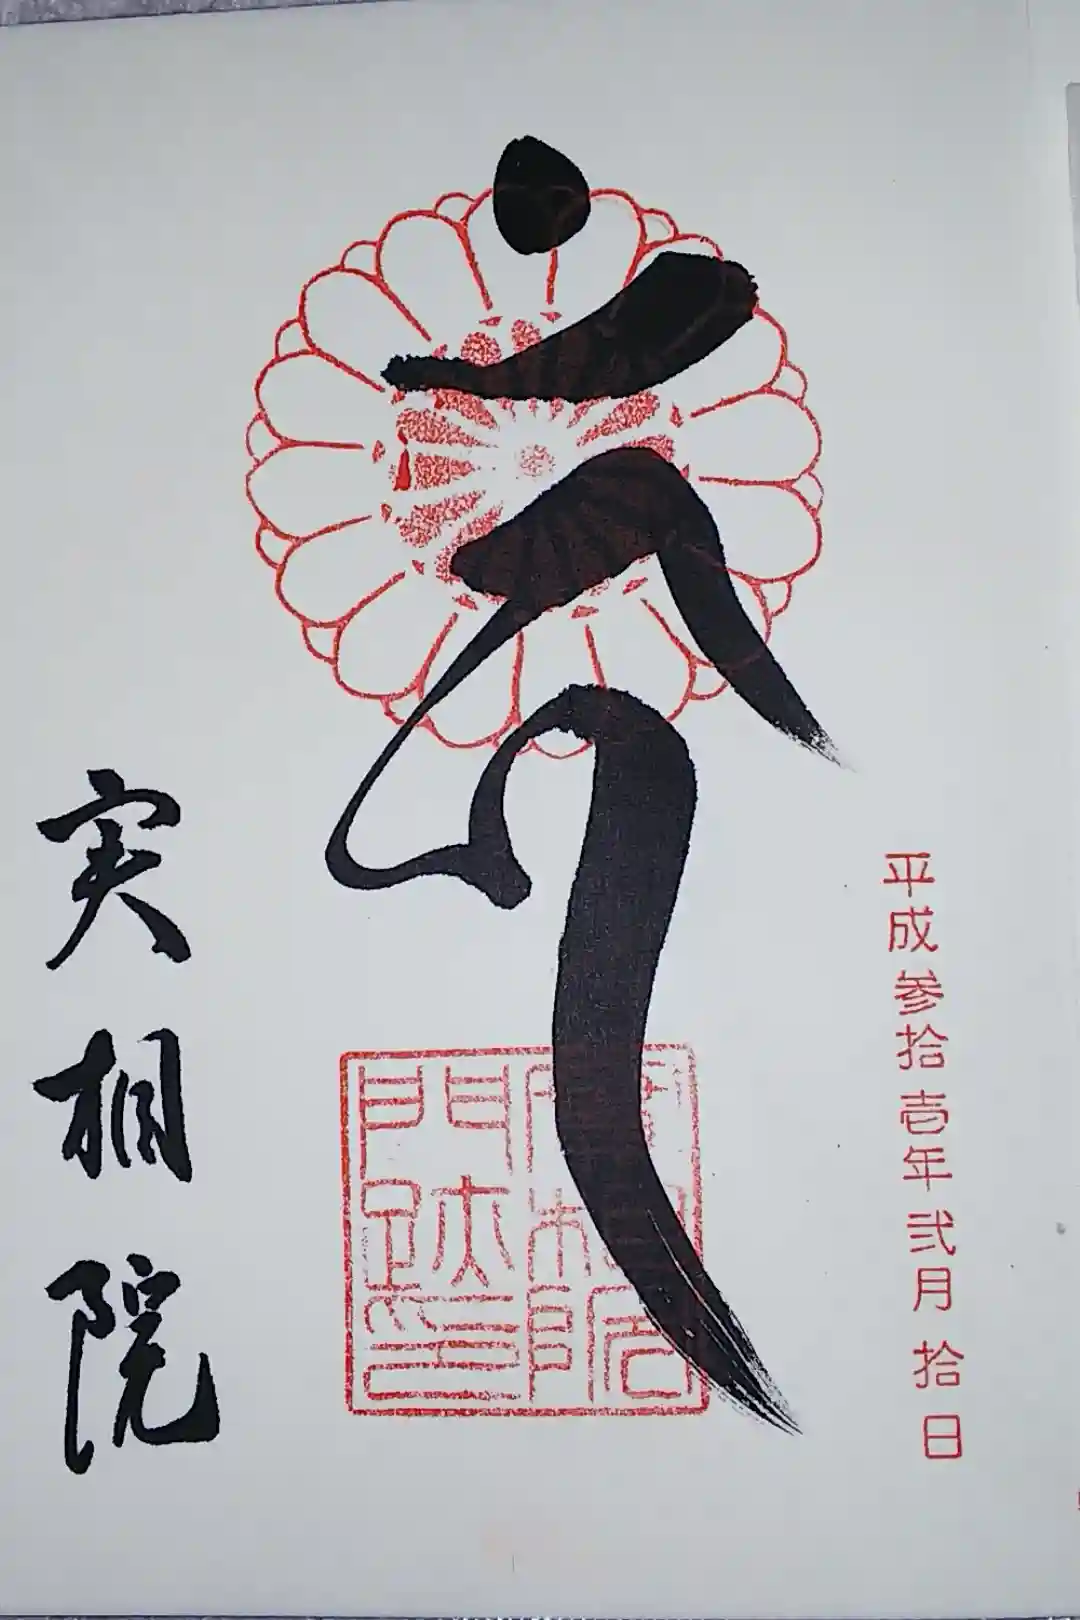 平成参拾壱年弐月拾日
門跡印
実相院